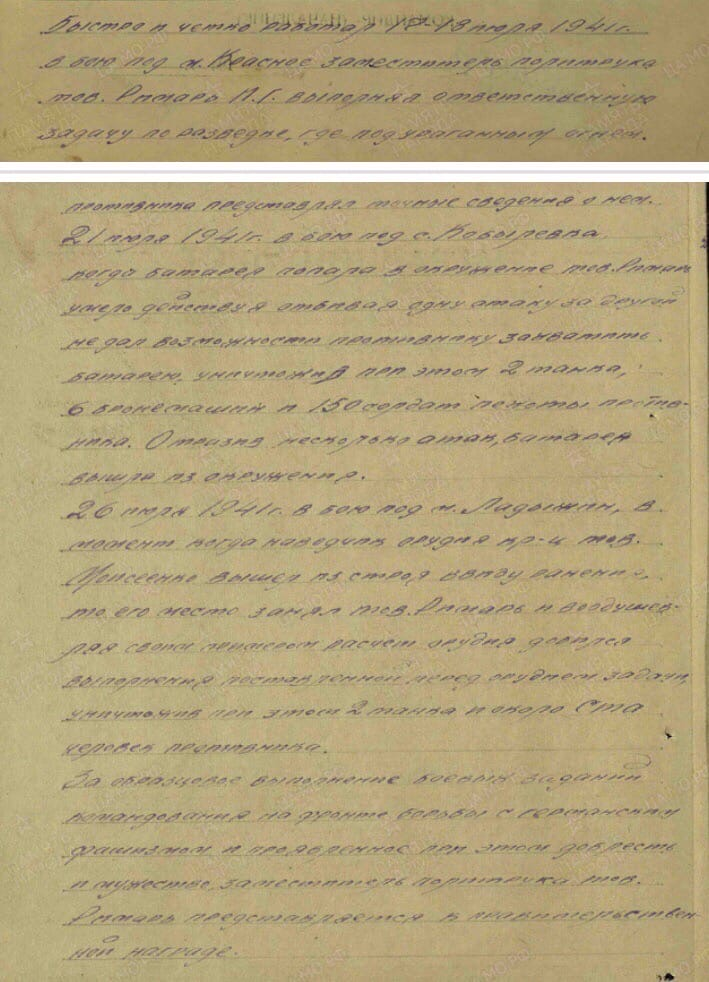 Быстро и четко работал 17-18 июля 1941 г.
в бою под м. Красное заместитель политрука
тов. Рымарь П.Г. выполнял ответственную
задачу по разведке, где под ураганным огнем.
противника представлял точные сведения о нем.
21 июля 1941 г. в бою под с. Кобыревка,
когда батарея попала в окружение тов. Рымарь
умело действуя отбивая одну атаку за другой
не дал возможности противнику захватить
батарею, уничтожив при этом 2 танка,
6 бронемашин и 150 солдат пехоты против-
ника. Отразив несколько атак, батарея
вышла из окружения.
26 июля 1941 г. в бою под м. Ладыжин, в
момент когда наводчик орудия кр-ц тов.
Моисеенко вышел из строя ввиду ранения,
то его место занял тов. Рымарь и воодушев-
ляя своим примером расчет орудия добился
выполнения поставленной перед орудием задачи,
уничтожив при этом 2 танка и около ста
человек противника.
За образцовое выполнение боевых заданий
командования на фронте борьбы с германским
фашизмом и проявленное при этом доблесть
и мужество, заместитель политрука тов.
Рымарь представляется к правительствен-
ной награде.